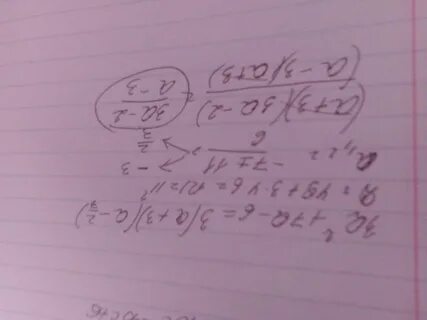 3a² + 7a - 6 = 3(a + 3)(a - 2/3)
D = 49 + 3·4·6 = 121 = 11²
a₁,₂ = (-7 ± 11)/6 = -3; 2/3
(a+3)(3a-2)/(a-3)(a+3) = (3a-2)/(a-3)